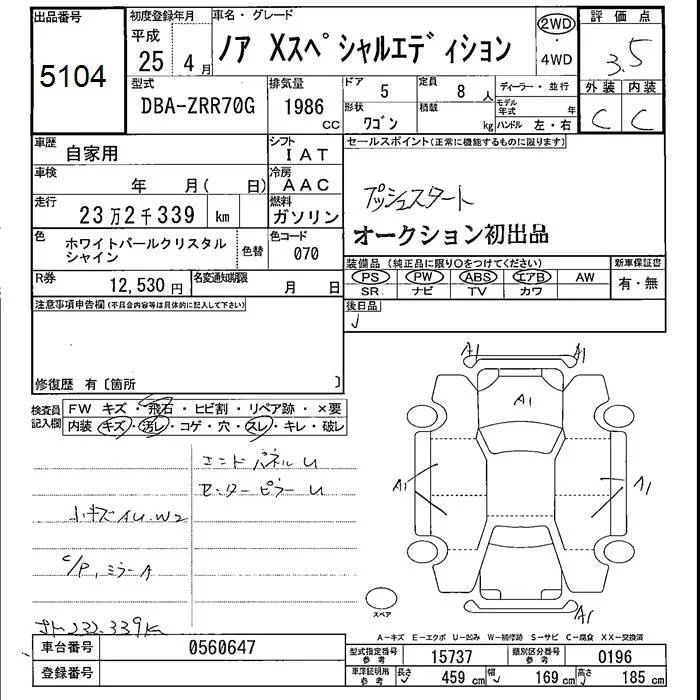 出品番号
5104
初度登録年月
平成
25 4月
車名・グレード
ノア Xスペシャルエディション
2WD
・
4WD
評価点
3.5
外装 内装
C C
型式
DBA-ZRR70G
排気量
1986
CC
ドア
5
定員
8 人
形状
ワゴン
積載
kg
ディーラー・並行
モデル年式 年
ハンドル 左・右
車歴
自家用
シフト
IAT
車検
年 月( 日)
冷房
AAC
走行
23万2千339 km
燃料
ガソリン
色
ホワイトパールクリスタル
シャイン
色替
色コード
070
R券
12,530 円
名変通知期限
月 日
セールスポイント(正常に機能するものに限ります)
プッシュスタート
オークション初出品
装備品(純正品に限り○をつけてください)
PS PW ABS エアB AW
SR ナビ TV カワ
新車保証書
有・無
後日品
注意事項申告欄(不具合内容等は具体的に記入して下さい)
修復歴 有〔箇所 〕
検査員
記入欄
FW キズ・飛石・ヒビ割・リペア跡・×要
内装 キズ・汚レ・コゲ・穴・スレ・キレ・破レ
エンドパネルU
センターピラーU
小キズAU.W2
C/P,ミラーA
メーター232.339K
A1 A1
A1
A1 A1
A1
スペア
A-キズ E-エクボ U-凹み W-補修跡 S-サビ C-腐食 XX-交換済
車台番号
0560647
登録番号
型式指定番号
参考
15737
類別区分番号
参考
0196
車渾証明用
参考
長さ 459 cm
幅 169 cm
高さ 185 cm